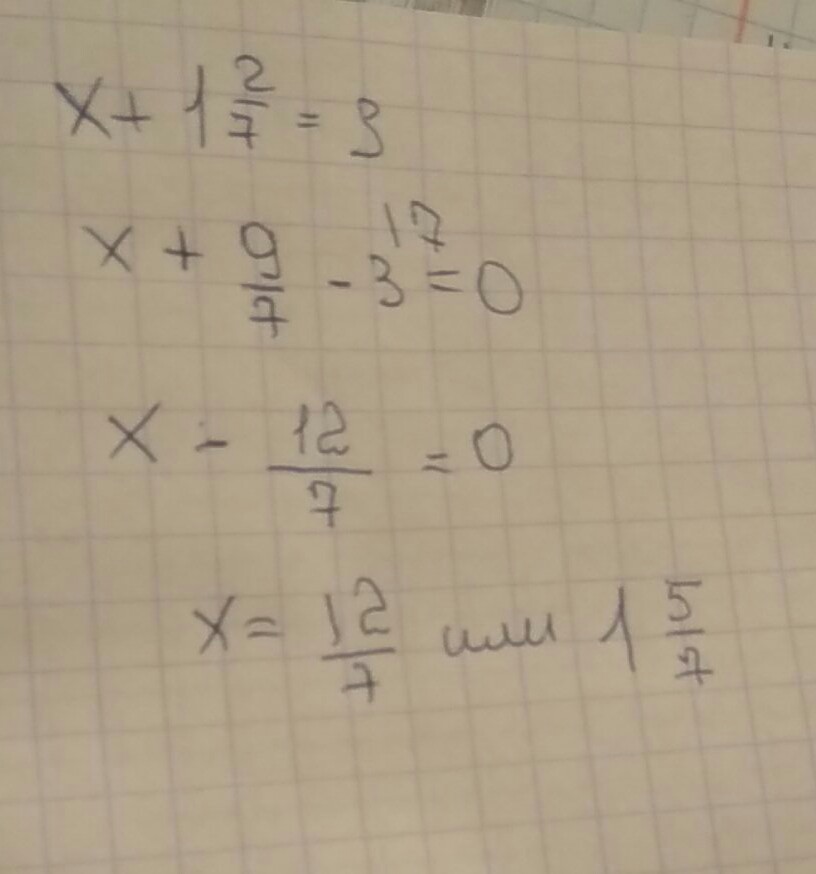 x + 1 2/7 = 3
x + 9/7 - 3 \7 = 0
x - 12/7 = 0
x = 12/7 или 1 5/7